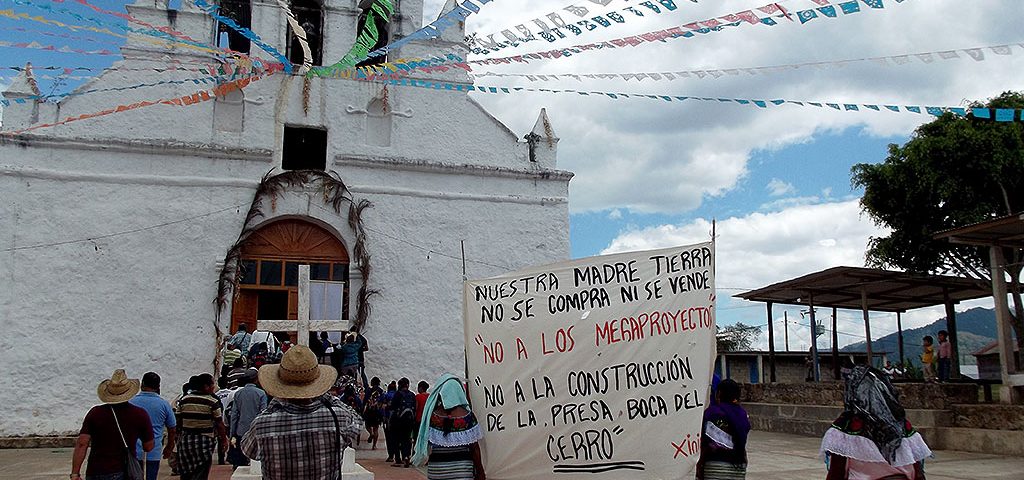 NUESTRA MADRE TIERRA
NO SE COMPRA NI SE VENDE
"NO A LOS MEGAPROYECTOS"
"NO A LA CONSTRUCCIÓN
DE LA PRESA BOCA DEL
CERRO"